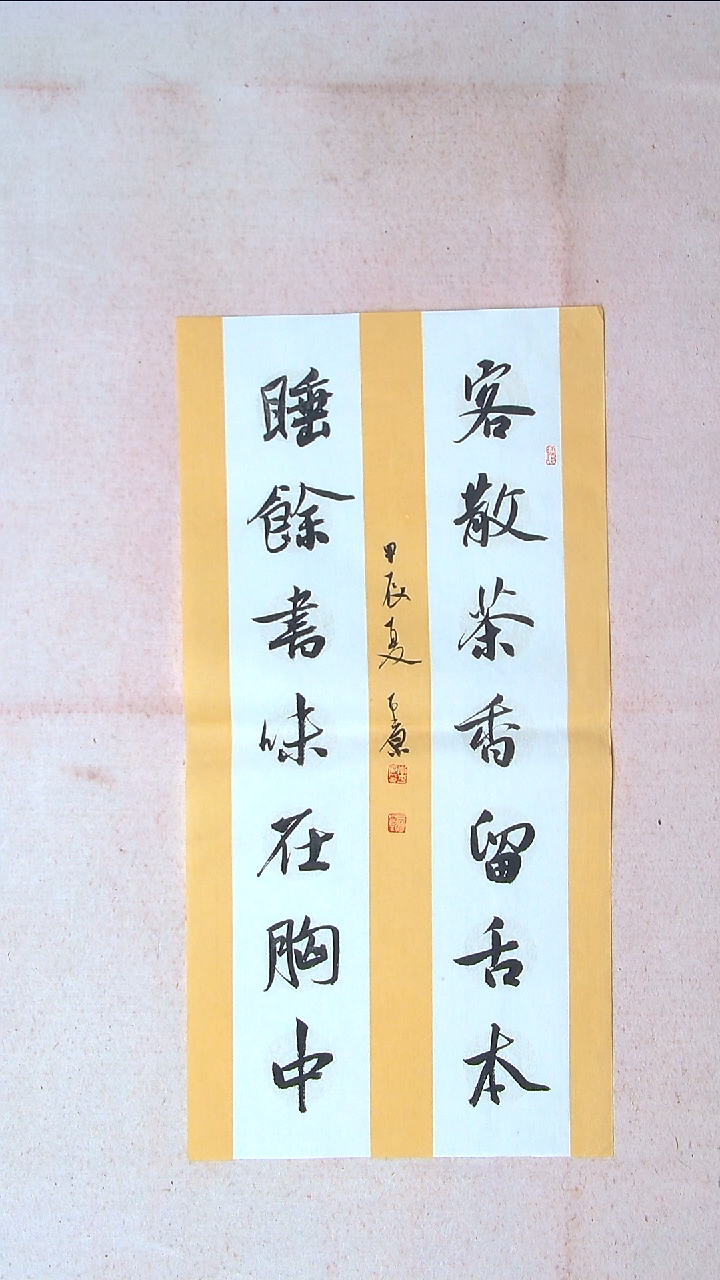 客散茶香留舌本
睡餘書味在胸中
甲辰夏